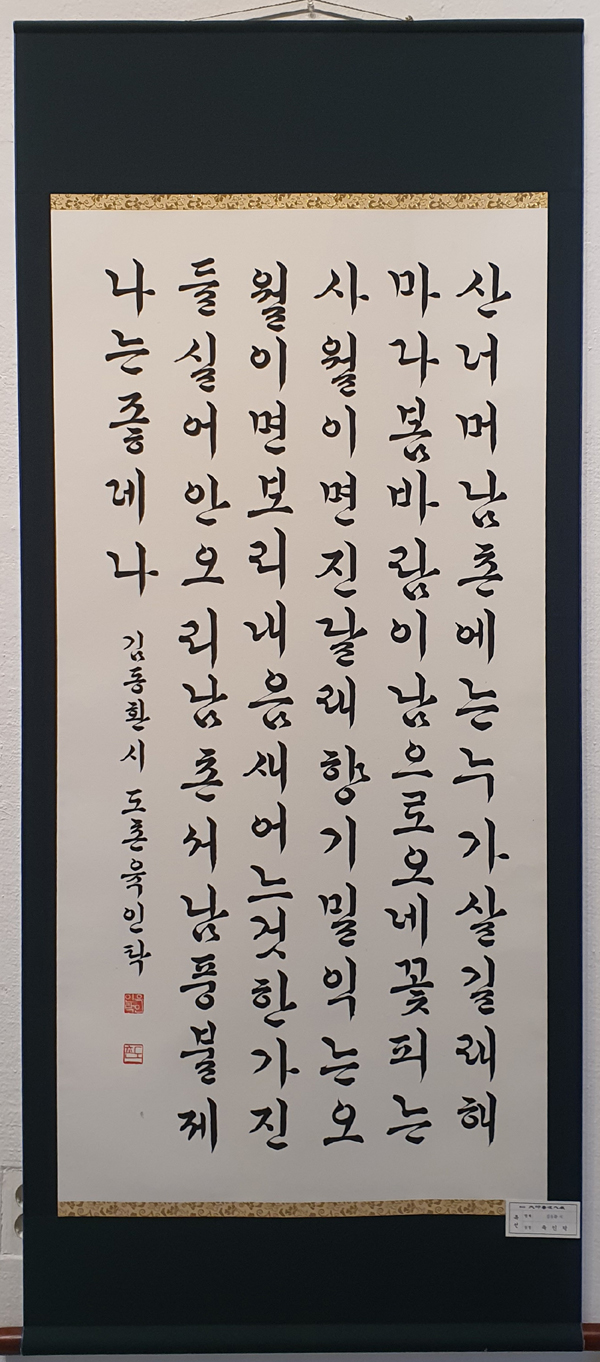 산너머남촌에는누가살길래해
마다봄바람이남으로오네꽃피는
사월이면진달래향기밀익는오
월이면보리내음새어느것한가진
들실어안오리남촌서남풍불제
나는좋데나
김동환시 도촌육인탁